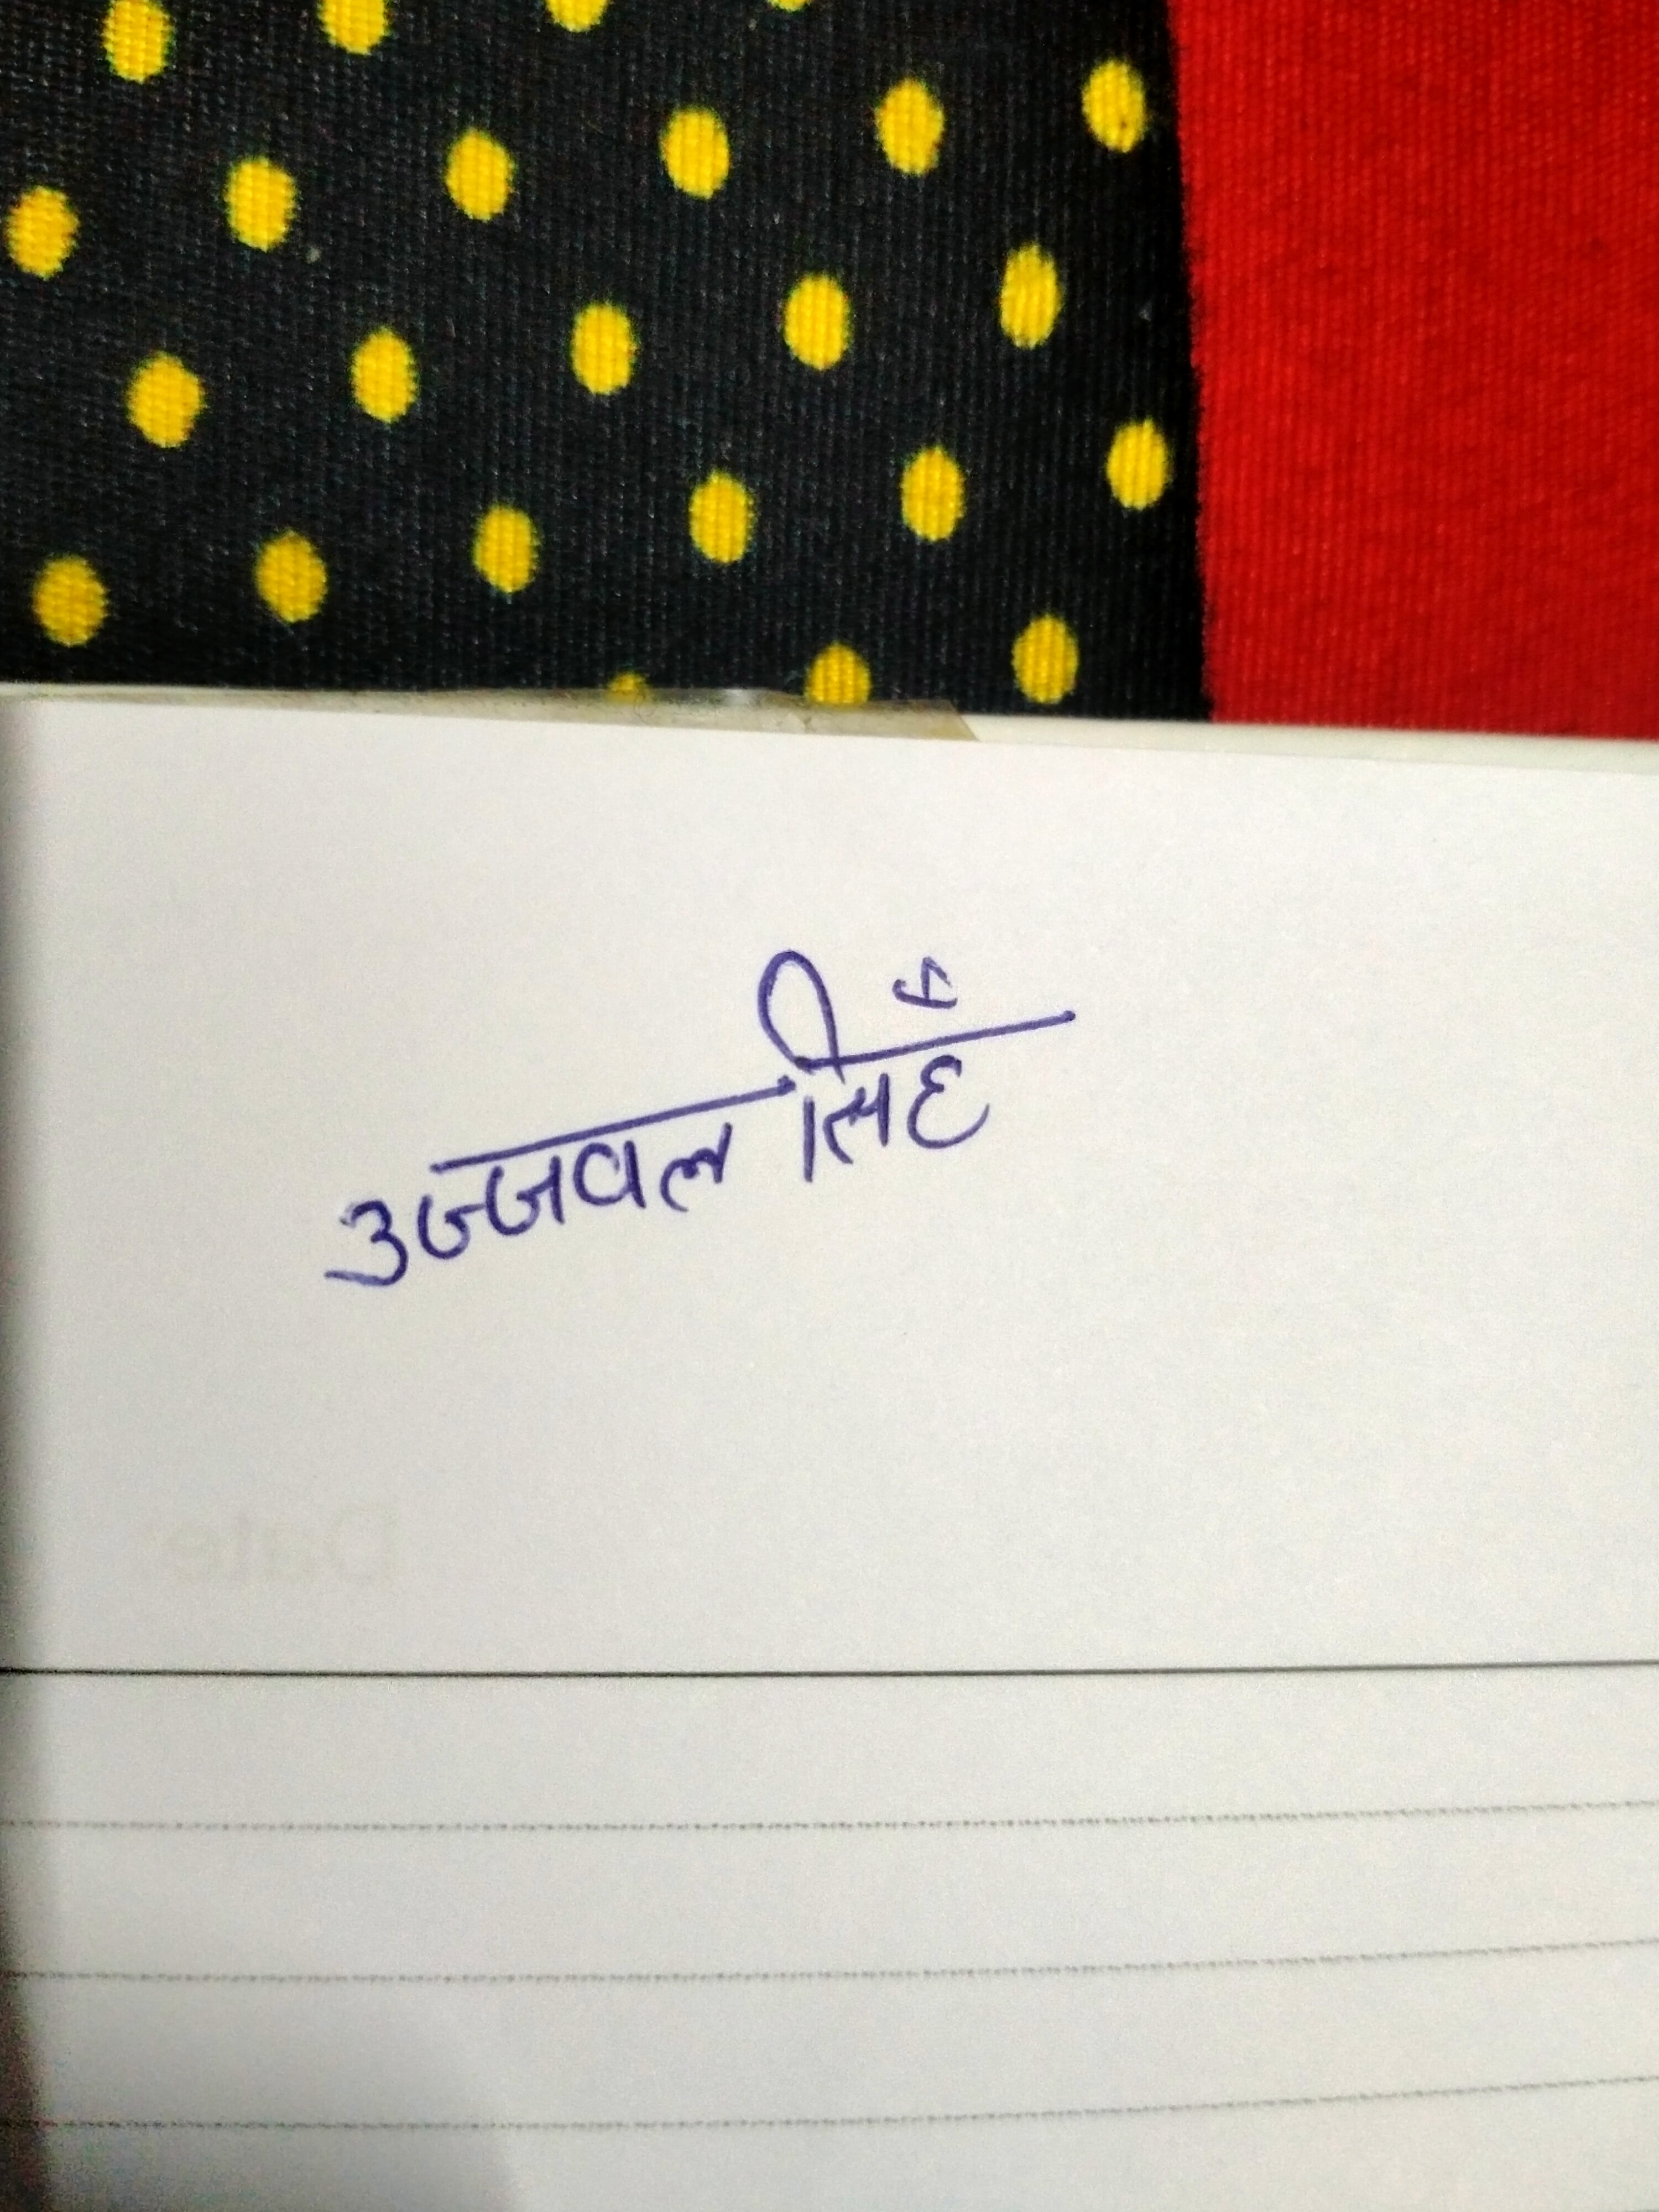 उज्जवल सिहँ
Date